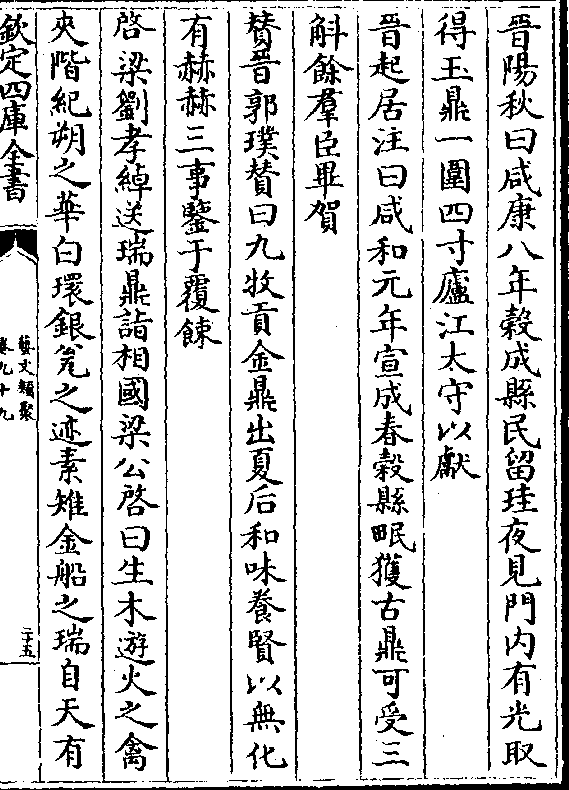 晉陽秋曰咸康八年榖成縣民留珪夜見門内有光取
得玉鼎一圍四寸廬江太守以獻
晉起居注曰咸和元年宣成春榖縣眠獲古鼎可受三
斛餘羣臣畢賀
賛晉郭璞賛曰九牧貢金鼎出夏后和味養賢以無化
有赫赫三事鑒于覆餗
啓梁劉孝綽送瑞鼎詣相國梁公啓曰生木遊火之禽
夾階紀朔之華白環銀瓮之迹素雉金船之瑞自天有
欽定四庫全書
藝文類聚
卷九十九
二十五